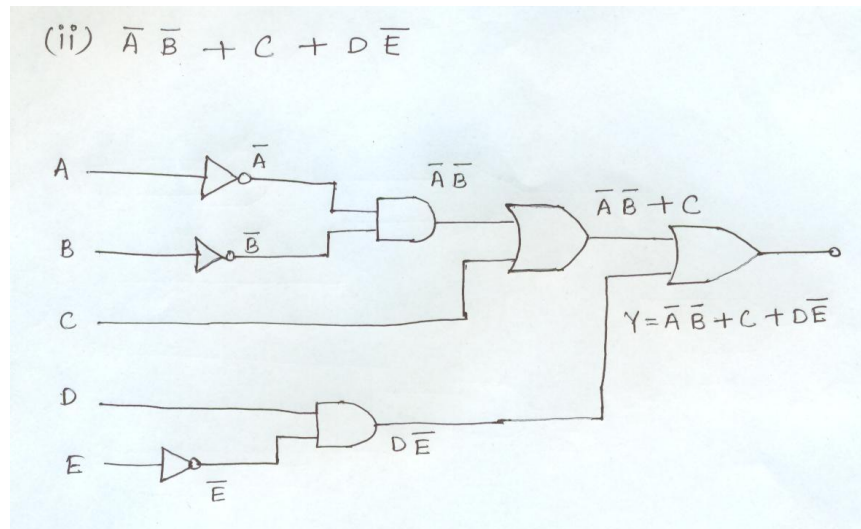 (ii) A̅ B̅ + C + D E̅
A
A̅
A̅ B̅
A̅ B̅ + C
B
B̅
C
Y = A̅ B̅ + C + D E̅
D
D E̅
E
E̅